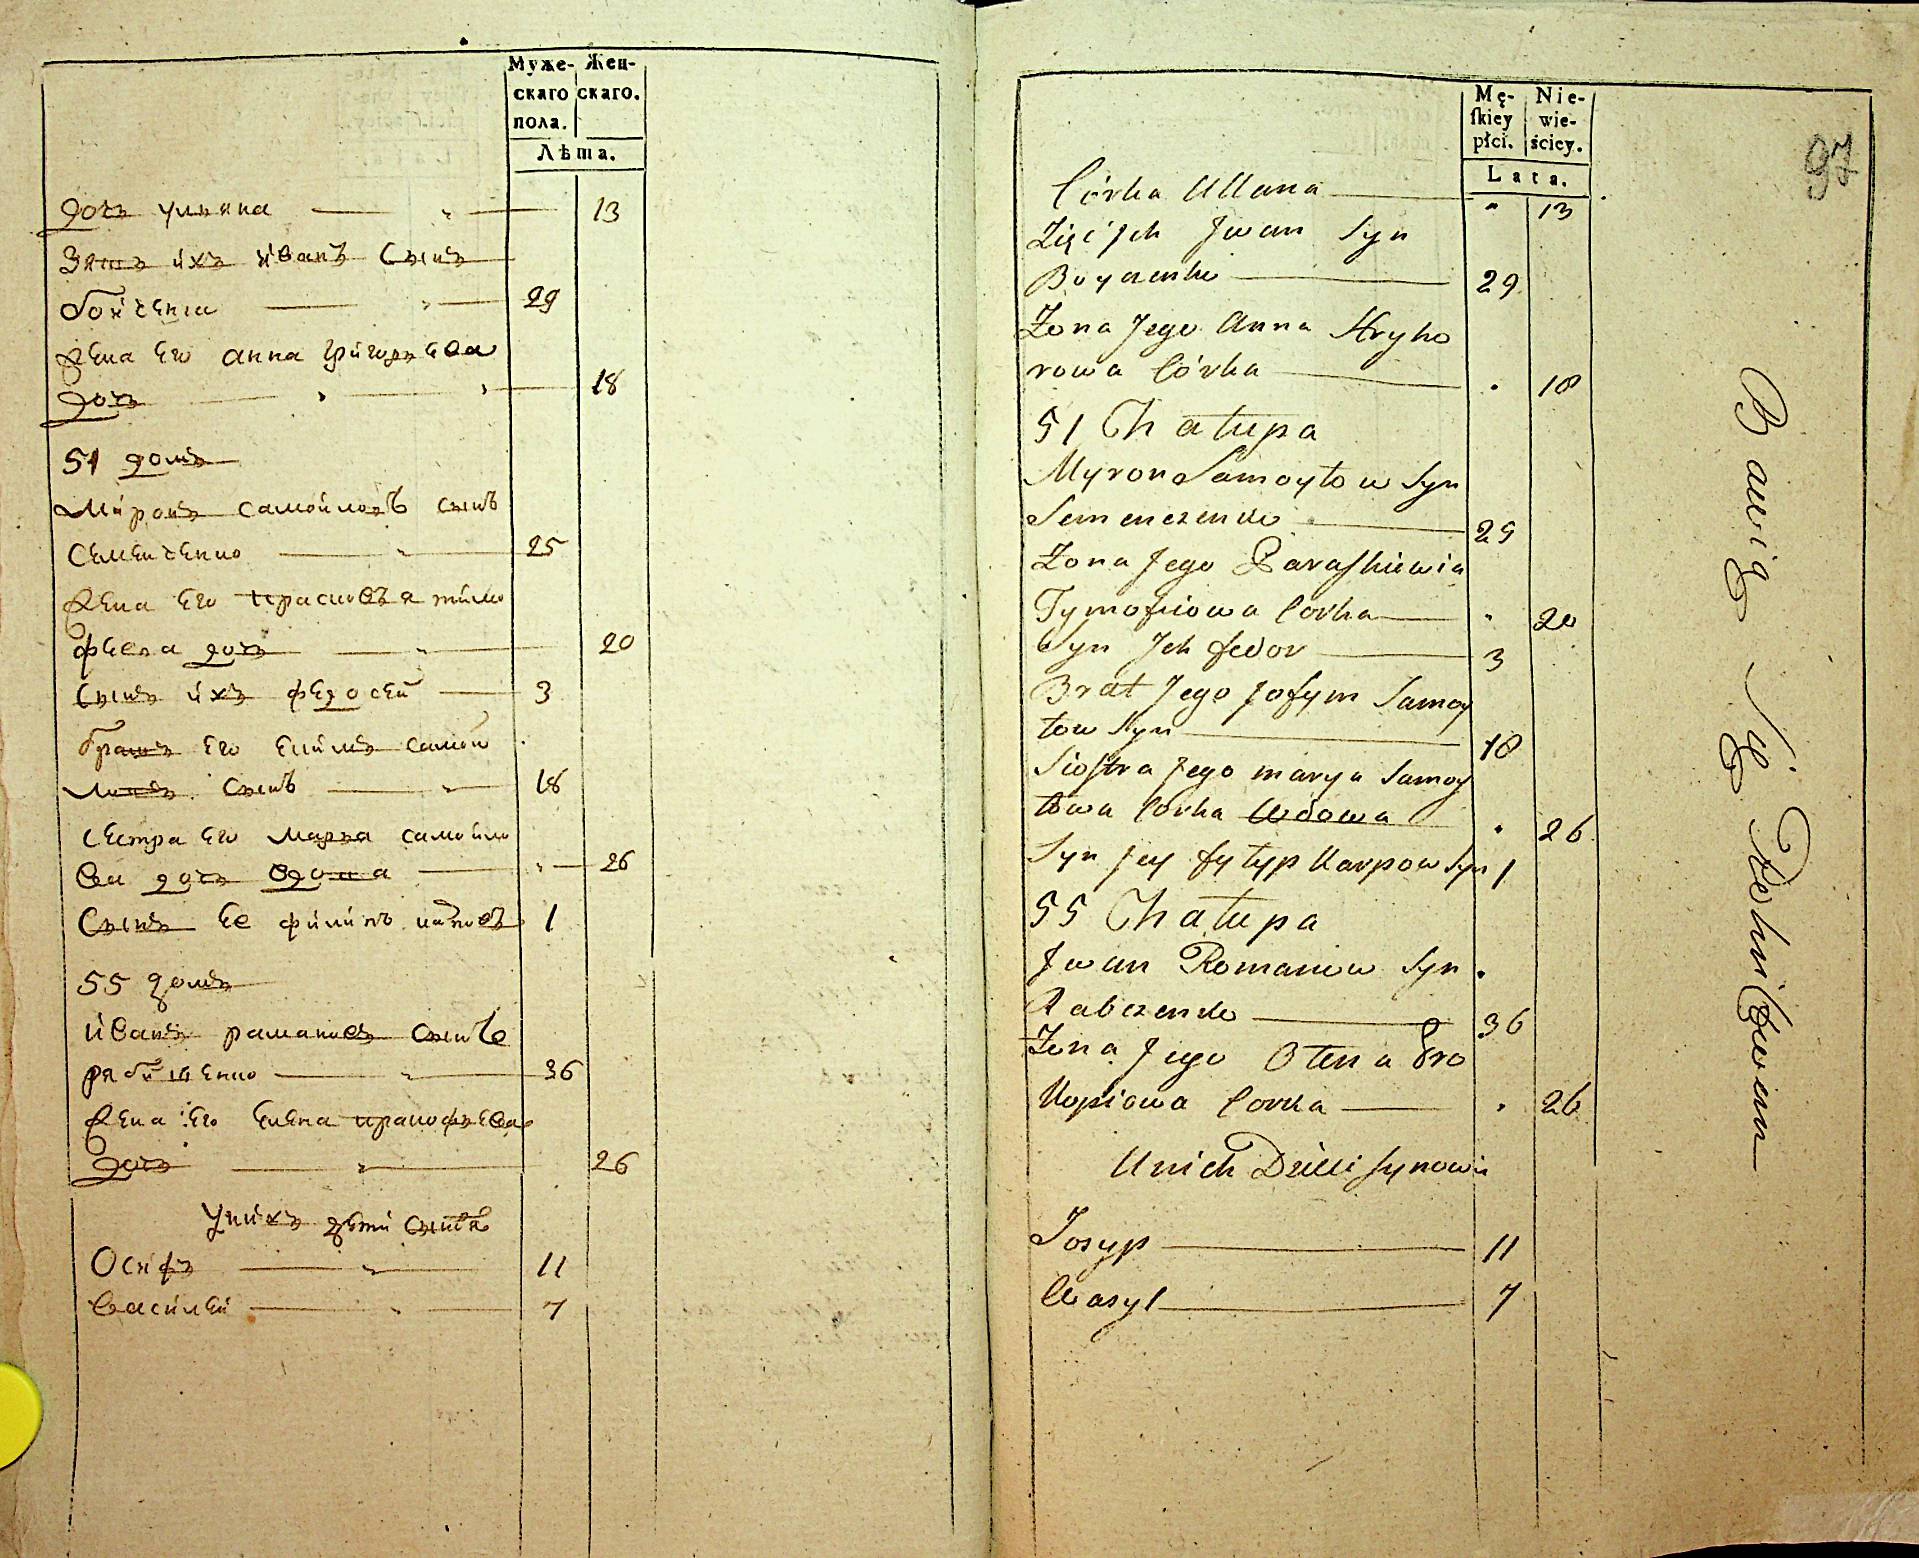 Муже- Жен-
скаго скаго.
пола.
Лѣта.
дочь ульяна — „ — 13
Зять ихъ иванъ Сынъ
бойченка — „ — 29
жена его анна григорьева
дочь — „ — „ — 18
51 домъ
Миронъ самойловъ сынъ
Семенченко — „ — 25
жена его прасковья тимо
фѣева дочь — „ — 20
Сынъ ихъ федосей — 3
братъ его ефимъ самой
ловъ Сынъ — „ — 18
сестра его марья самойло
ва дочь вдова — „ — 26
Сынъ ее филипъ 1
55 домъ
иванъ романовъ сынъ
рабченко — „ — 36
жена его елена прокофьева
дочь — „ — 26
у нихъ дѣти сыновья
Осифъ — „ — 11
василей — „ — 7
Mę- Nie-
ſkiey wie-
płci. ściey.
Lata.
97
Córka Ullana — „ 13
Zięć Jch Jwan Syn
Boyczenko — 29
Żona Jego Anna Hryho
rowa Córka — . 18
51 Chałupa
Myron Samoyłow Syn
Semenczenko — 25
Żona Jego Paraſkiewia
Tymofiiowa Corka — . 20
Syn Jch fedor — 3
Brat Jego Jofym Samoy
łow Syn — 18
Sioſtra Jego marya Samoy
łowa Corka Wdowa . 26
Syn Jey fyłyp Karpow Syn 1
55 Chałupa
Jwan Romanow Syn .
Rabczenko — 36
Żona Jego Ołena Pro
kopiowa Corka — . 26
Unich Dzieci Synowie
Josyp — 11
Wasyl — 7
Bawią Się Rolnictwem